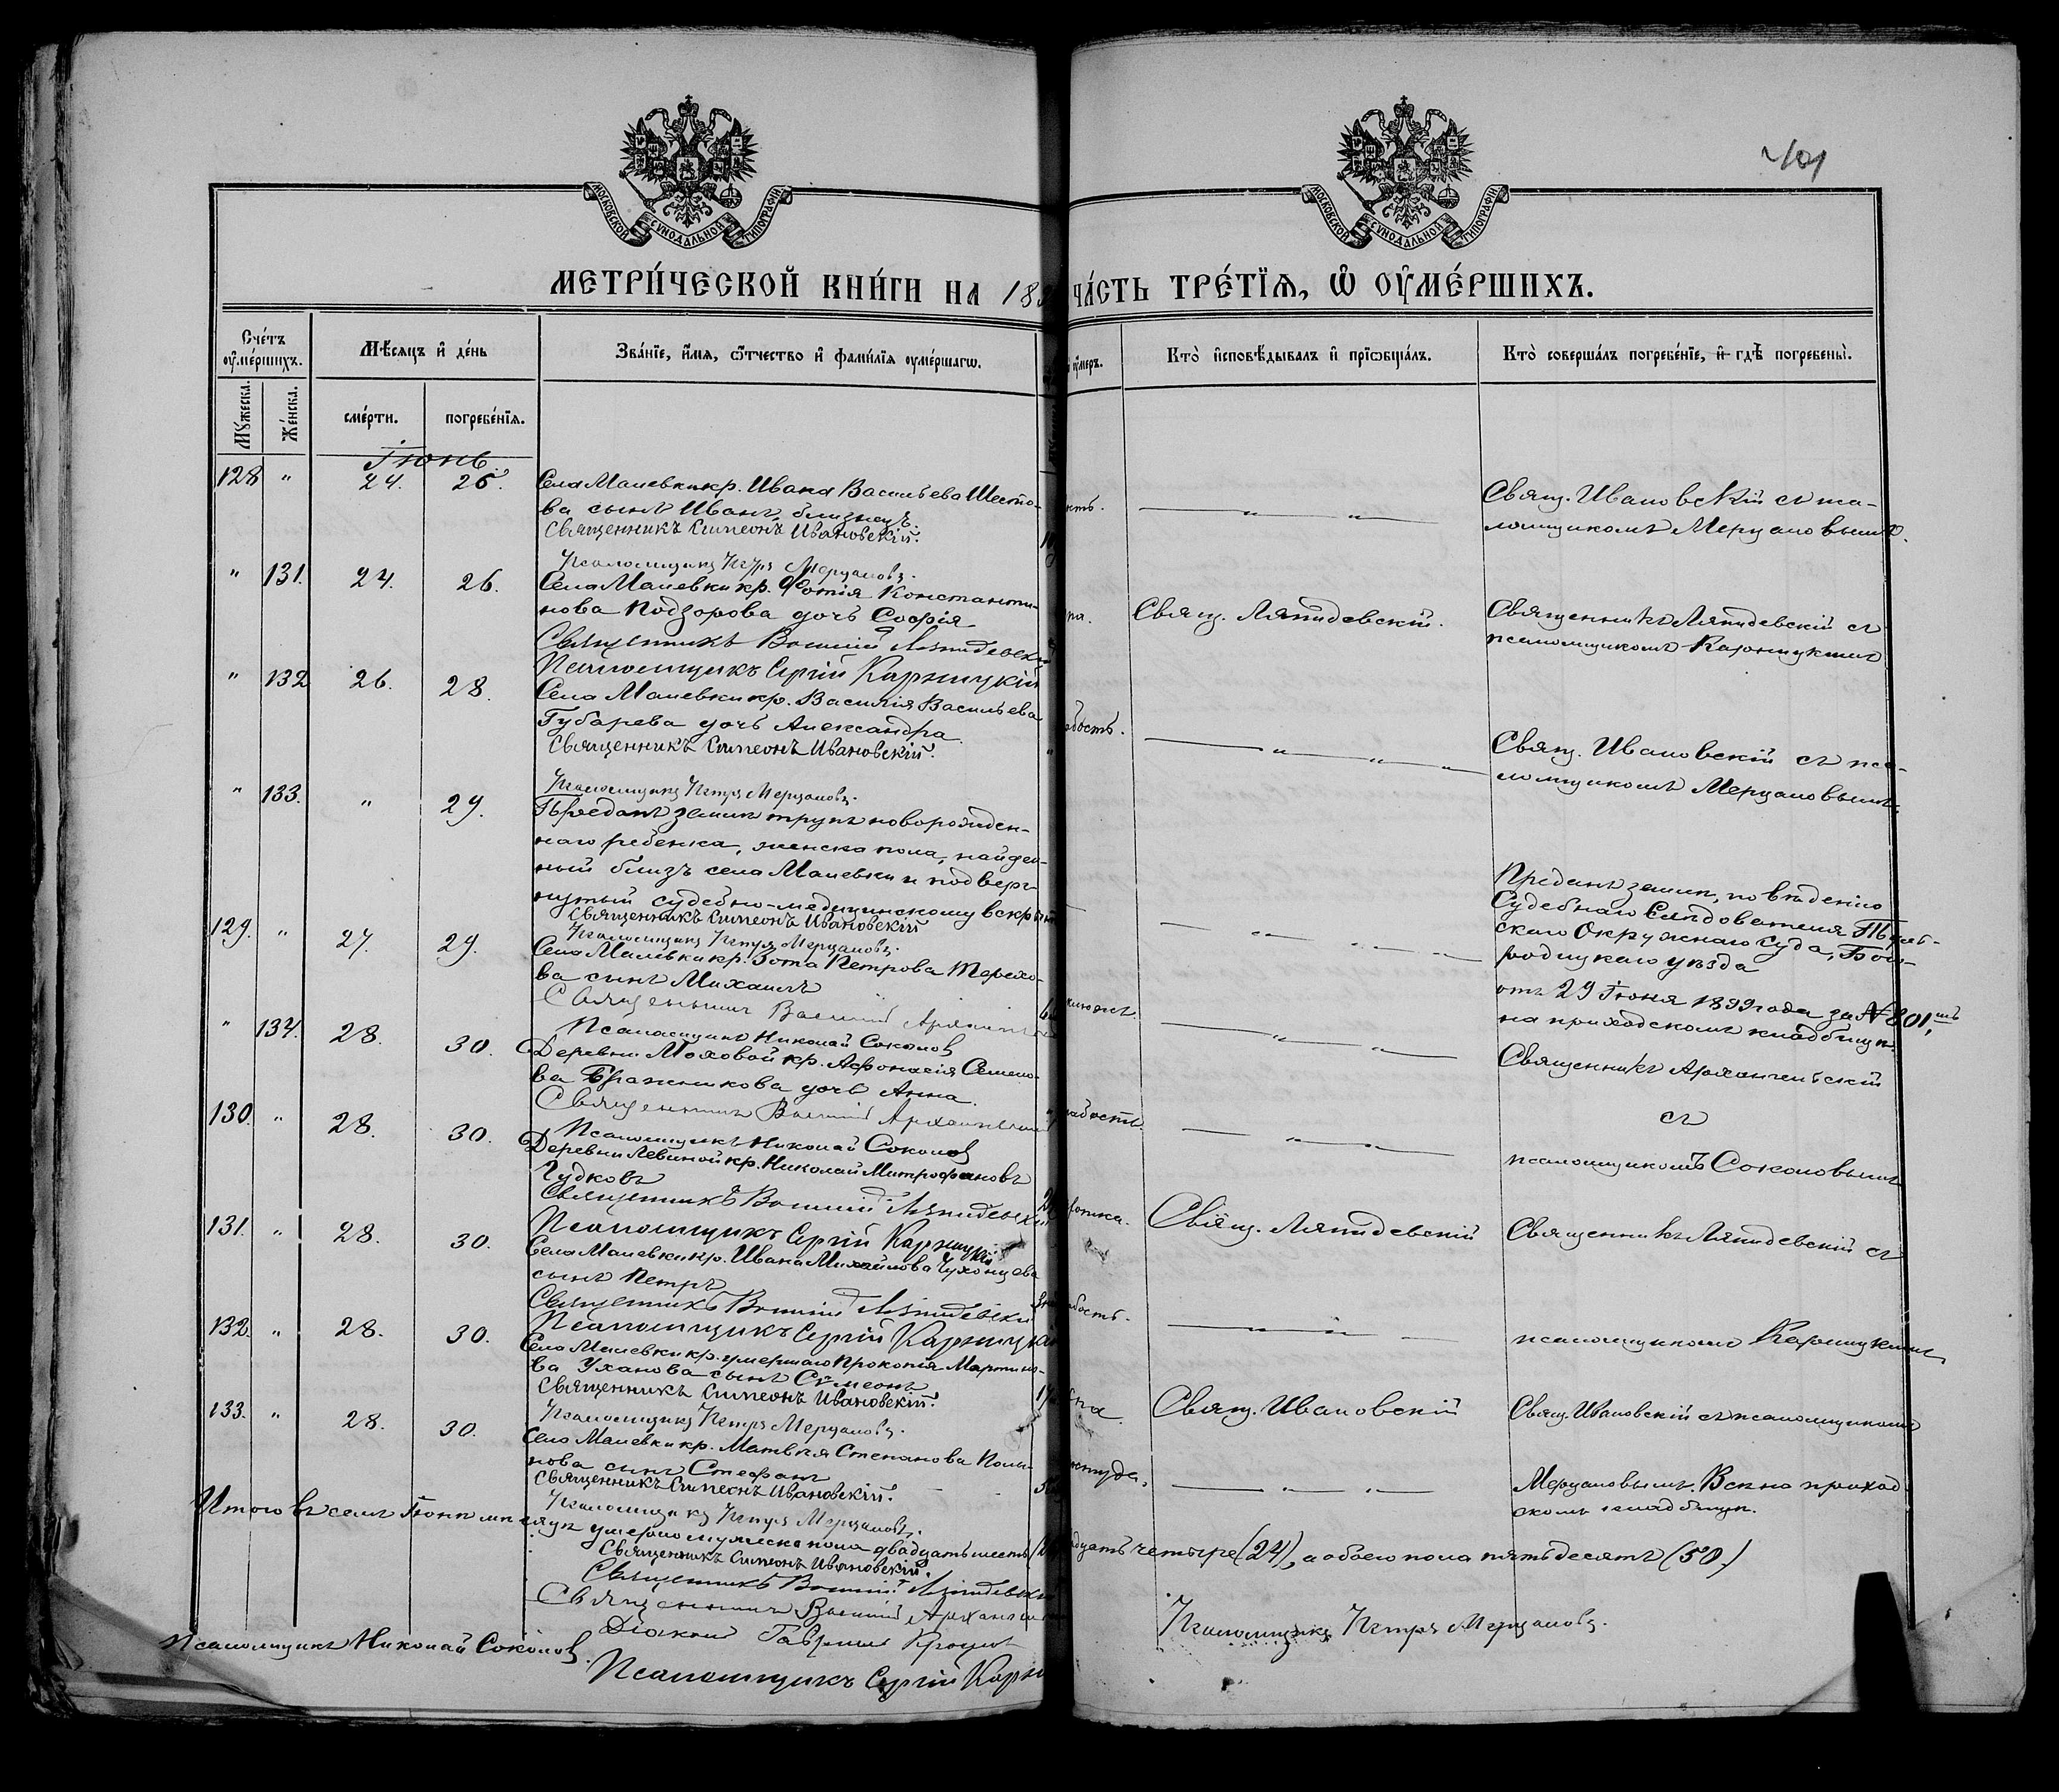 401
МОСКОВСКОЙ СѴНОДАЛЬНОЙ ТИПОГРАФІИ
МОСКОВСКОЙ СѴНОДАЛЬНОЙ ТИПОГРАФІИ
МЕТРИ́ЧЕСКОЙ КНИ́ГИ НА 18
ЧА́СТЬ ТРЕ́ТЇѦ, Ѡ ОУМЕ́РШИХЪ.
Сче́тъ оуме́ршихъ.
Мѣсяцъ и де́нь
Зва́нїе, и́мя, ѻ҆́тчество и фами́лїя оуме́ршагѡ.
оумеръ.
Кто̀ исповѣ́дывалъ и прїѡбща́лъ.
Кто̀ соверша́лъ погребе́нїе, и гдѣ̀ погребены̀.
Мꙋжеска.
Же́нска.
сме́рти.
погребе́нїя.
Іюнь.
128 " 24. 26. Села Малевки кр. Ивана Васильева Шесто-
ва сынъ Иванъ, близнецъ.
Священникъ Симеонъ Ивановскій.
Псаломщикъ Петръ Мерцаловъ.
Свящ. Ивановскій съ пса-
ломщикомъ Мерцаловымъ.
" 131. 24. 26. Села Малевки кр. Фотія Константи-
нова Подзорова дочь Софія
Священникъ Василій Ляпидевскій
Псаломщикъ Сергій Карницкій
Свящ. Ляпидевскій.
Священникъ Ляпидевскій съ
псаломщикомъ Карницкимъ
" 132 26. 28. Села Малевки кр. Василія Васильева
Губарева дочь Александра.
Священникъ Симеонъ Ивановскій.
Псаломщикъ Петръ Мерцаловъ.
Свящ. Ивановскій съ пса-
ломщикомъ Мерцаловымъ.
" 133. " 29. Преданъ землѣ трупъ новорожден-
наго ребенка, женска пола, найден-
ный близъ села Малевки и подверг-
нутый судебно-медицинскому вскрытію
Священникъ Симеонъ Ивановскій
Псаломщикъ Петръ Мерцаловъ.
Преданъ землѣ, по
Судебнаго Слѣдователя Туль-
скаго Окружнаго Суда, Бого-
родицкаго уѣзда
отъ 29 Іюня 1899 года за № 801,
на приходскомъ кладбищѣ.
129. " 27. 29. Села Малевки кр. Зота Петрова Терехо-
ва сынъ Михаилъ
Священникъ Василій
Псаломщикъ Николай Соколов
" 134. 28. 30. Деревни Моховой кр. Афонасія Семено-
ва Бражникова дочь Анна.
Священникъ Василій
Псаломщикъ Николай Соколов
Священникъ Архангельскій
съ
псаломщикомъ Соколовымъ
130. " 28. 30. Деревни Левиной кр. Николай Митрофановъ
Гудковъ
Священникъ Василій Ляпидевскій
Псаломщикъ Сергій Карницкій
Свящ. Ляпидевскій
Священникъ Ляпидевскій съ
131. " 28. 30. Села Малевки кр. Ивана Михайлова Чухонцева
сынъ Петръ
Священникъ Василій Ляпидевскій
Псаломщикъ Сергій Карницкій
псаломщикомъ Карницкимъ
132. " 28. 30. Села Малевки кр. умершаго Прокопія Мартино-
ва Уханова сынъ Сѵмеонъ
Священникъ Симеонъ Ивановскій.
Псаломщикъ Петръ Мерцаловъ.
Свящ. Ивановскій
Свящ. Ивановскій съ псаломщикомъ
133. " 28. 30. Села Малевки кр. Матвѣя Степанова
нова сынъ Стефанъ
Священникъ Симеонъ Ивановскій.
Псаломщикъ Петръ Мерцаловъ.
Мерцаловымъ. Всѣ на приход-
скомъ кладбищѣ.
Итого въ семъ Іюнѣ мѣсяцѣ умерло мужеска пола двадцать шесть
дцать четыре (24), а обоего пола пятьдесятъ (50.)
Священникъ Симеонъ Ивановскій.
Священникъ Василій Ляпидевскій
Священникъ Василій
Діаконъ Гавріилъ
Псаломщикъ Николай Соколов.
Псаломщикъ Сергій
Псаломщикъ Петръ Мерцаловъ.